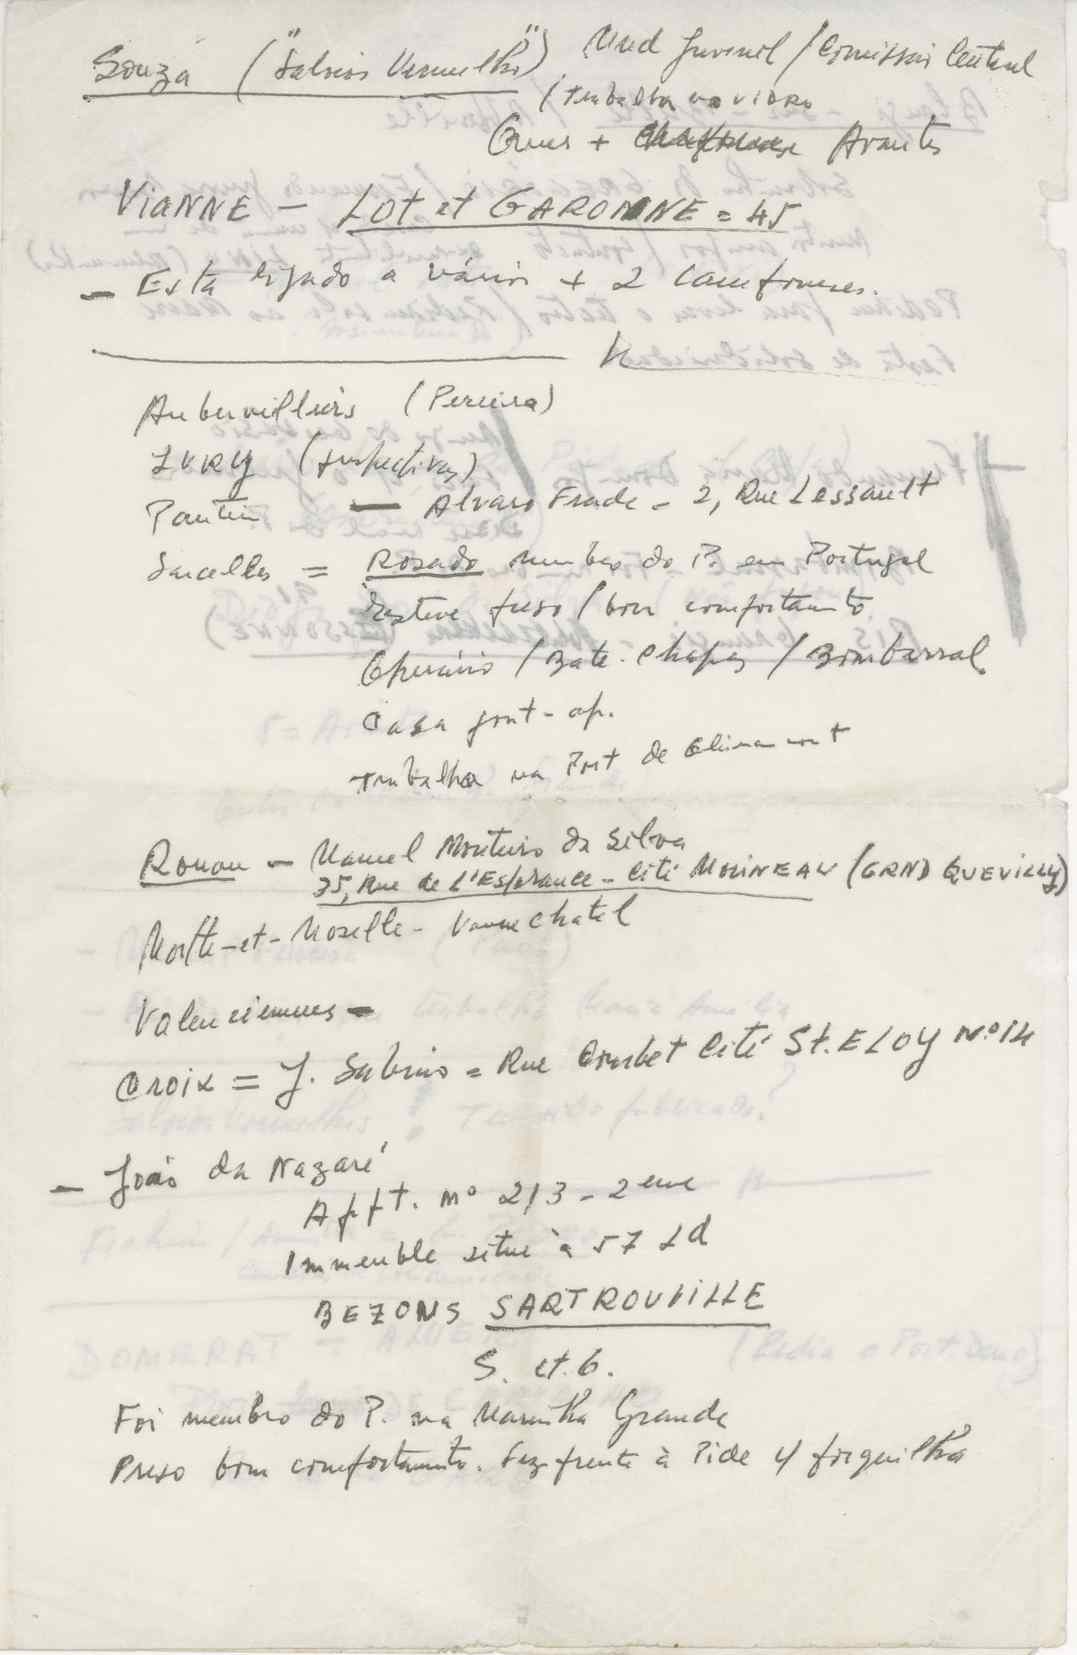 Souza ("Sabino Vermelho") Mud Juvenil / Comissão Central
/ trabalha no vidro
Quer + Avantes
VIANNE - LOT et GARONNE = 45
- Está ligado a vários + 2 camponeses.
Aubervilliers (Pereira)
IVRY (perspectivas)
Pantin - Alvaro Frade - 2, Rue Lessault
Sarcelles = Rosado membro do P. em Portugal
Esteve preso / bom comportamento
Operário / Bate-chapas / Bombarral
Casa
trabalha na Port de
Rouen - Manuel Monteiro da Silva
35, Rue de L'Esperance - Cité MOLINEAU (GRND QUEVILLY)
-et-Moselle -
Valenciennes -
Croix = J. Sabino = Rue Cité St. ELOY Nº 14
- João da Nazaré
Appt. nº 213 - 2 eme
Immeuble situé à 57 Ld
BEZONS SARTROUVILLE
S. et. O.
Foi membro do P. na Marinha Grande
Preso bom comportamento. Fez frente à Pide c/ forquilha